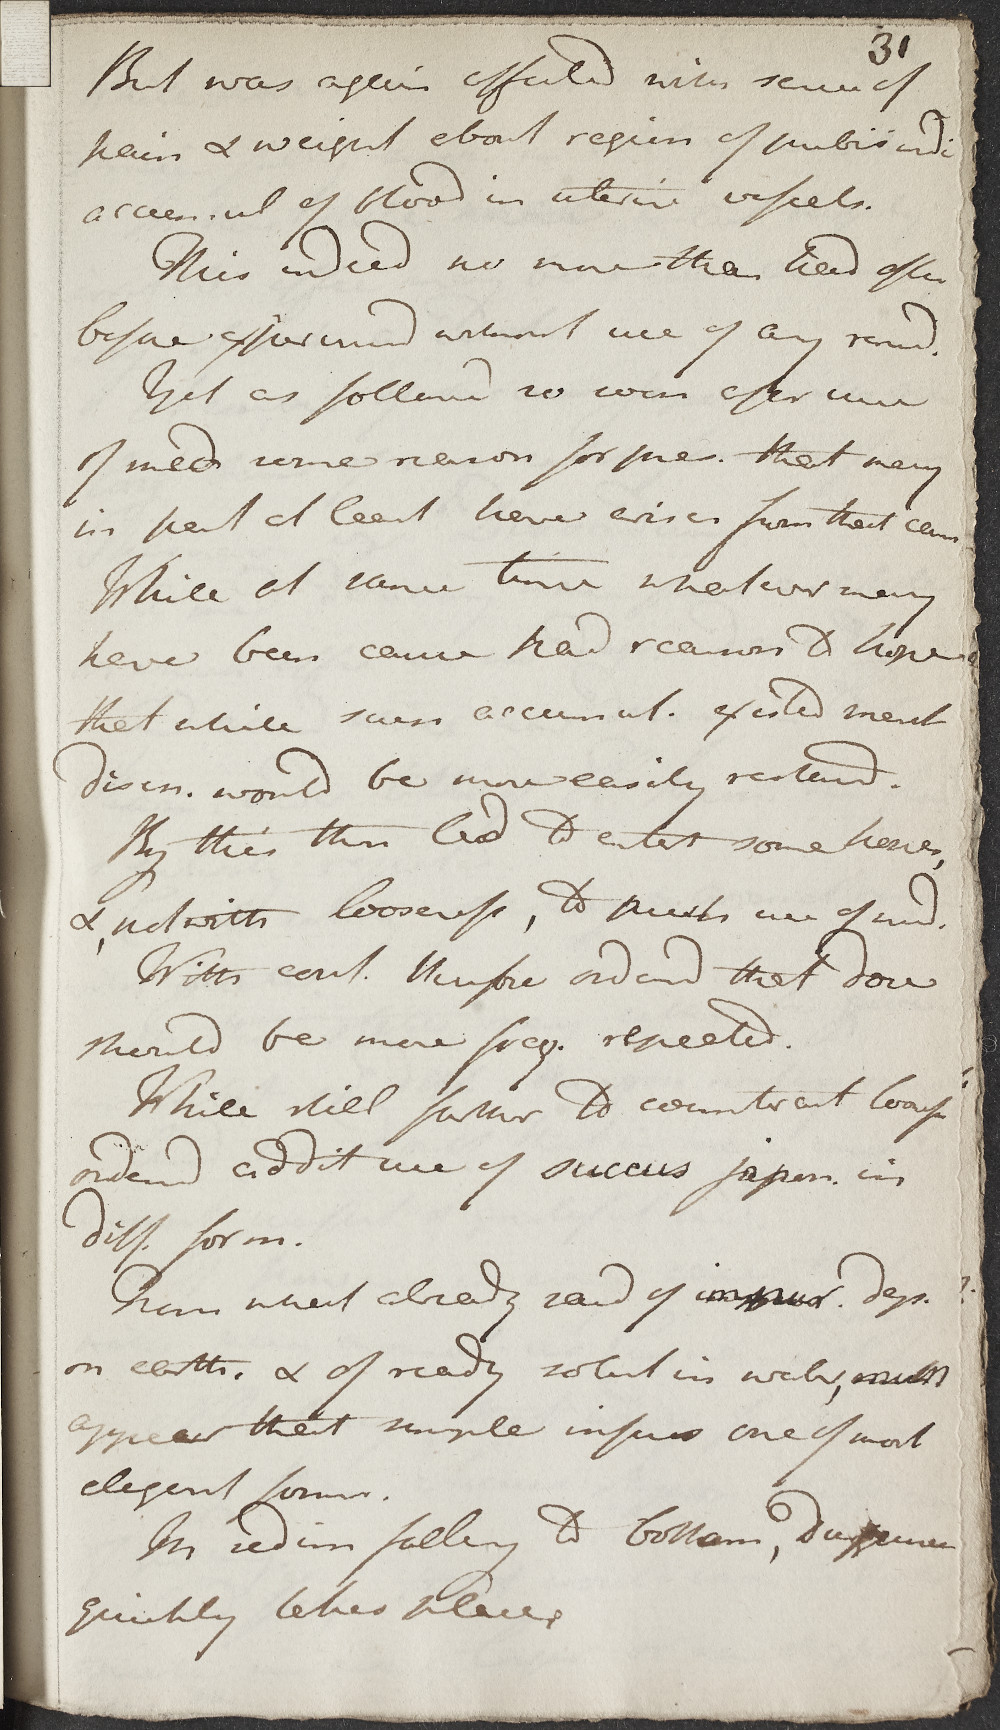 31
But was again affected with sense of
pain & weight about region of pubis indi
accumul of blood in uterine vessels.
This indeed no more than had often
before experienced without use of any remed.
Yet as followed so soon after use
of med some reason for pres. that may
in part at least have arisen from that caus
While at same time whatever may
have been cause had reason to hope
that while such accumul. existed menst
disch. would be more easily restored.
By this then led to entert some hopes,
&, notwith looseness, to push use of med.
With cont. therefore ordered that dose
should be more freq. repeated.
While still farther to counteract loosns
ordered addit use of succus japon. in
diff. form.
From what already said of impur. dep.
on earth. & of ready solut in water, must
appear that simple infus one of most
elegant forms.
In sedim falling to bottom,
quickly takes place,